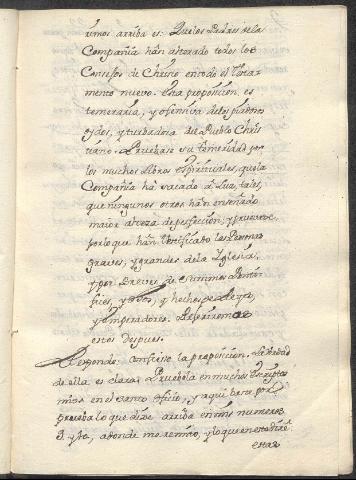 rimos arriba es: Que los Padres dela
Compañia han alterado todos los
Consejos de Christo en todo el testa-
mento nuevo. Esta proposicion es
temeraria, y ofensiva delos piadosos
oydos, y turbadora del Pueblo Chris-
tiano. Pruebase su temeridad por
los muchos libros espirituales, que la
Compañia ha sacado à luz, tales,
que ningunos otros han enseñado
maior alteza de perfeccion; y pruevase
por lo que han testificado las Personas
graves, y grandes de la Iglesia,
y por Breves de summos Pontifi-
fices, y dichos, y hechos de Reyes,
y Emperadores. Referiremos
estos despues.
Respondo confieso la proposicion. La verdad
de ella es clara: Pruebola en muchos escriptos
mios en el santo oficio, y aqui basta por
prueba lo que dixe arriba en mis numeros
3. y 4o, adonde me remito, y lo que en este diré
estas